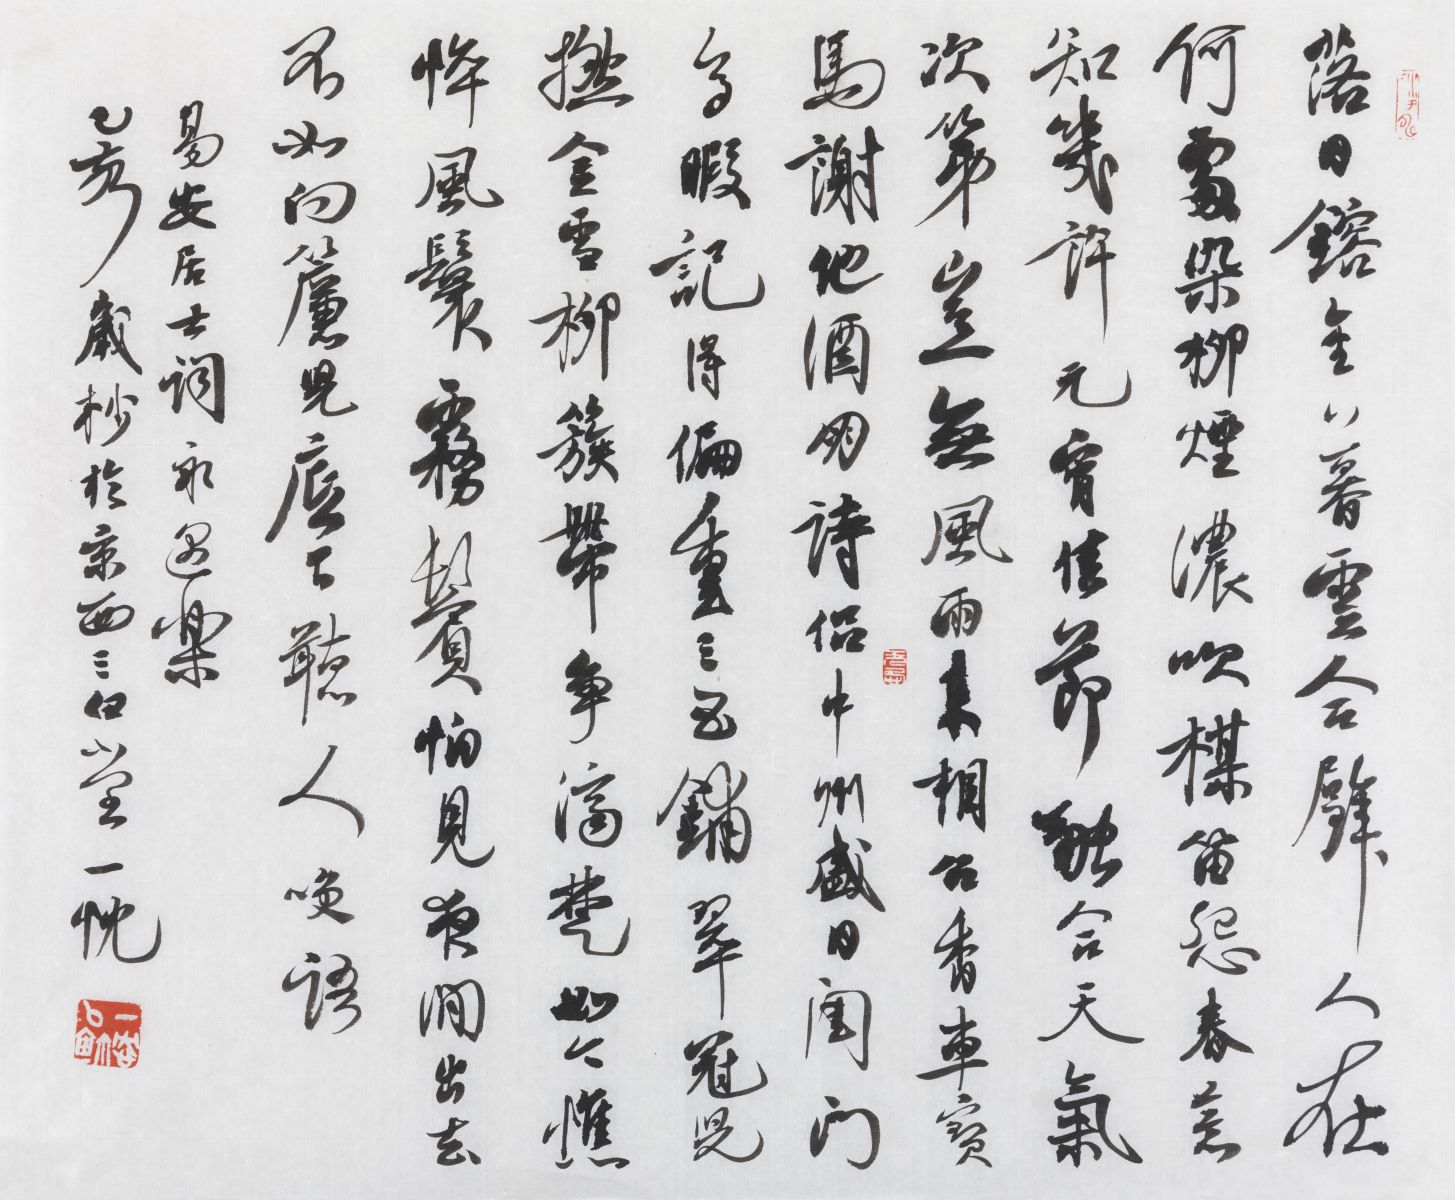 落日鎔金暮雲合璧人在
何處染柳煙濃吹楳笛怨春意
知幾許元宵佳節融合天氣
次第豈無風雨來相召香車寶
馬謝他酒朋詩侶中州盛日閨門
多暇記得偏重三五鋪翠冠兒
撚金雪柳簇帶爭濟楚如今憔
悴風鬟霧鬢怕見夜間出去
不如向簾兒底下聽人笑語
易安居士詞永遇樂
乙亥歲杪於京西三堂一忱